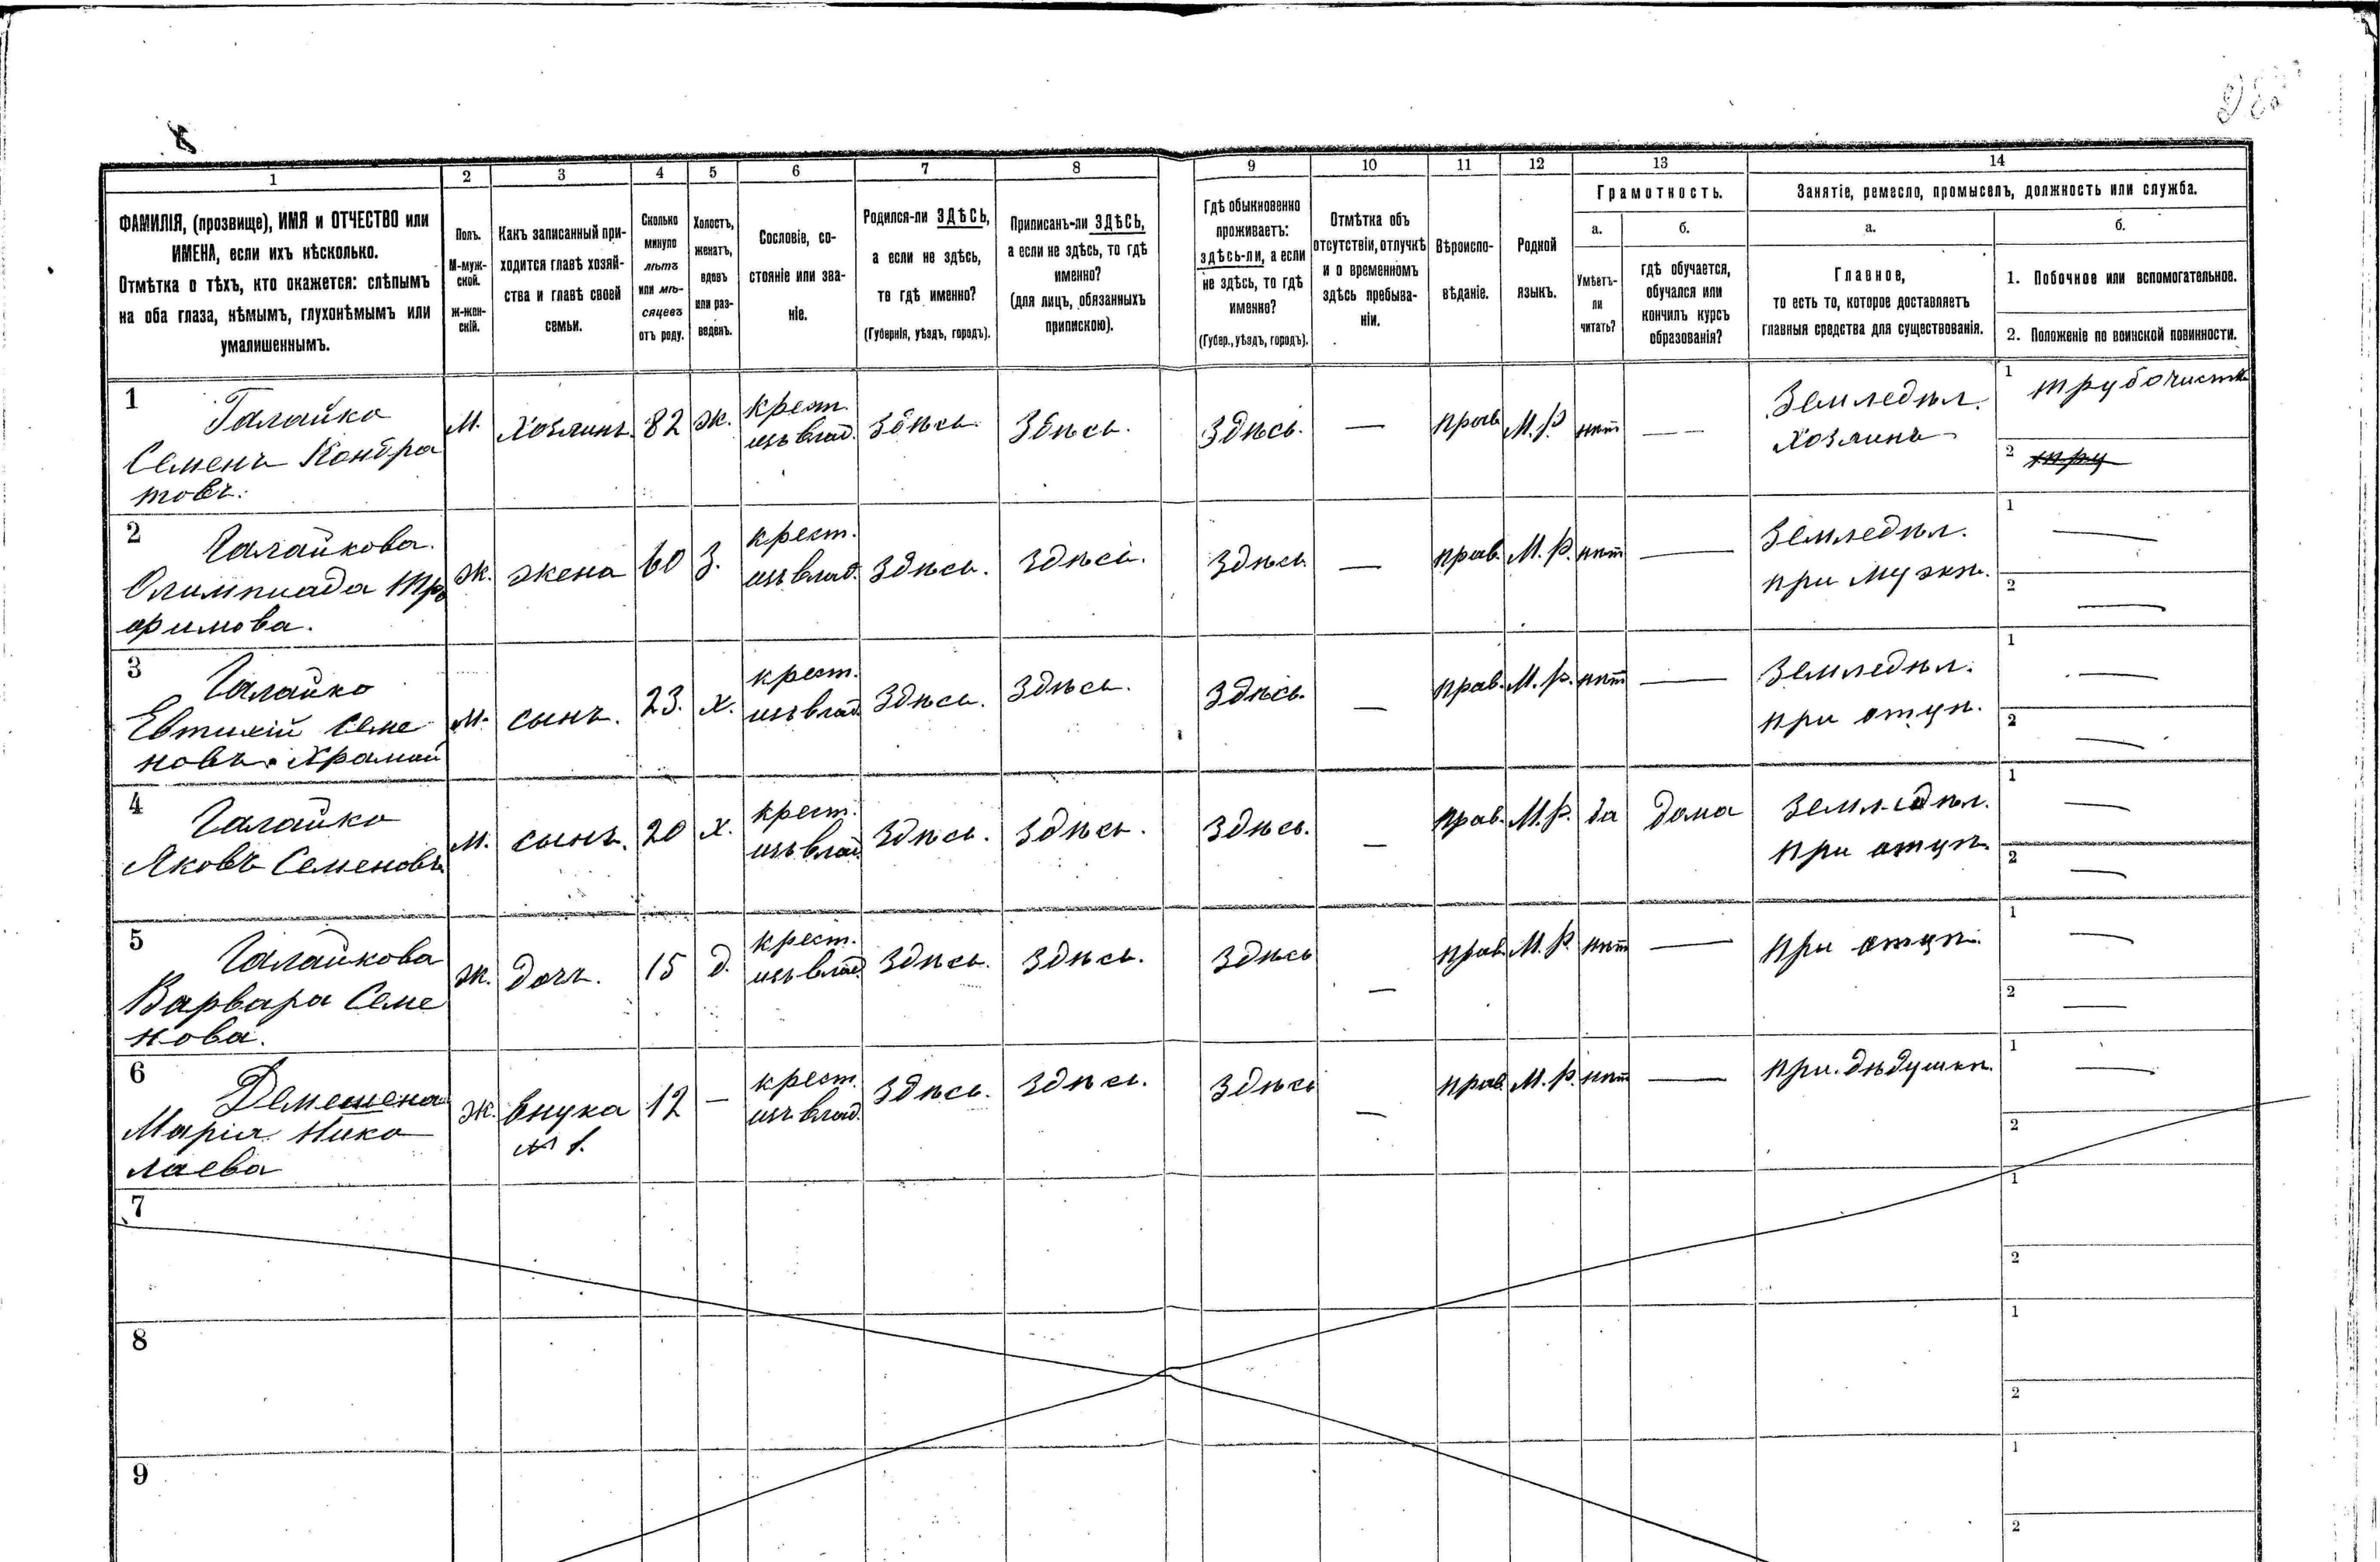 1 2 3 4 5 6 7 8 9 10 11 12 13 14
ФАМИЛІЯ, (прозвище), ИМЯ и ОТЧЕСТВО или
ИМЕНА, если ихъ нѣсколько.
Отмѣтка о тѣхъ, кто окажется: слѣпымъ
на оба глаза, нѣмымъ, глухонѣмымъ или
умалишеннымъ.
Полъ.
М-муж-
ской.
Ж-жен-
скій.
Какъ записанный при-
ходится главѣ хозяй-
ства и главѣ своей
семьи.
Сколько
минуло
лѣтъ
или мѣ-
сяцевъ
отъ роду.
Холостъ,
женатъ,
вдовъ
или раз-
веденъ.
Сословіе, со-
стояніе или зва-
ніе.
Родился-ли ЗДѢСЬ,
а если не здѣсь,
то гдѣ именно?
(Губернія, уѣздъ, городъ).
Приписанъ-ли ЗДѢСЬ,
а если не здѣсь, то гдѣ
именно?
(для лицъ, обязанныхъ
припискою).
Гдѣ обыкновенно
проживаетъ:
здѣсь-ли, а если
не здѣсь, то гдѣ
именно?
(Губер., уѣздъ, городъ).
Отмѣтка объ
отсутствіи, отлучкѣ
и о временномъ
здѣсь пребыва-
ніи.
Вѣроиспо-
вѣданіе.
Родной
языкъ.
Грамотность.
а.
Умѣетъ-
ли
читать?
б.
гдѣ обучается,
обучался или
кончилъ курсъ
образованія?
Занятіе, ремесло, промыселъ, должность или служба.
а.
Главное,
то есть то, которое доставляетъ
главныя средства для существованія.
б.
1. Побочное или вспомогательное.
2. Положеніе по воинской повинности.
1
Галайко
Семенъ Кондра
товъ.
М.
Хозяинъ.
82
Ж.
крест.
изъ влад.
Здѣсь.
Здѣсь.
Здѣсь.
—
прав
М. Р.
нѣт
—
Земледѣл.
Хозяинъ
1 трубочистъ
2 тру
2
Галайкова.
Олимпиада Тро
фимова.
Ж.
жена
60
З.
крест.
изъ влад.
Здѣсь.
Здѣсь.
Здѣсь
—
прав.
М. Р.
нѣт
—
Земледѣл.
при мужѣ.
1 —
2 —
3
Галайко
Евтихій Семе
новъ. Хромой
М.
сынъ.
23.
Х.
крест.
изъ влад.
Здѣсь.
Здѣсь.
Здѣсь.
—
прав.
М. Р.
нѣт
—
Земледѣл.
при отцѣ.
1 —
2 —
4
Галайко
Яковъ Семеновъ
М.
сынъ.
20
Х.
крест.
изъ влад.
Здѣсь.
Здѣсь.
Здѣсь.
—
прав.
М. Р.
да
дома
Земледѣл.
при отцѣ.
1 —
2 —
5
Галайкова
Варвара Семе
нова.
Ж.
дочь.
15
д.
крест.
изъ влад.
Здѣсь.
Здѣсь.
Здѣсь
—
прав.
М. Р.
нѣт
—
при отцѣ.
1 —
2 —
6
Марія Нико
лаева
Ж.
внука
№ 1.
12
—
крест.
изъ влад.
Здѣсь.
Здѣсь.
Здѣсь
—
прав.
М. Р.
нѣт
—
при. дѣдушкѣ.
1 —
2
7
1
2
8
1
2
9
1
2